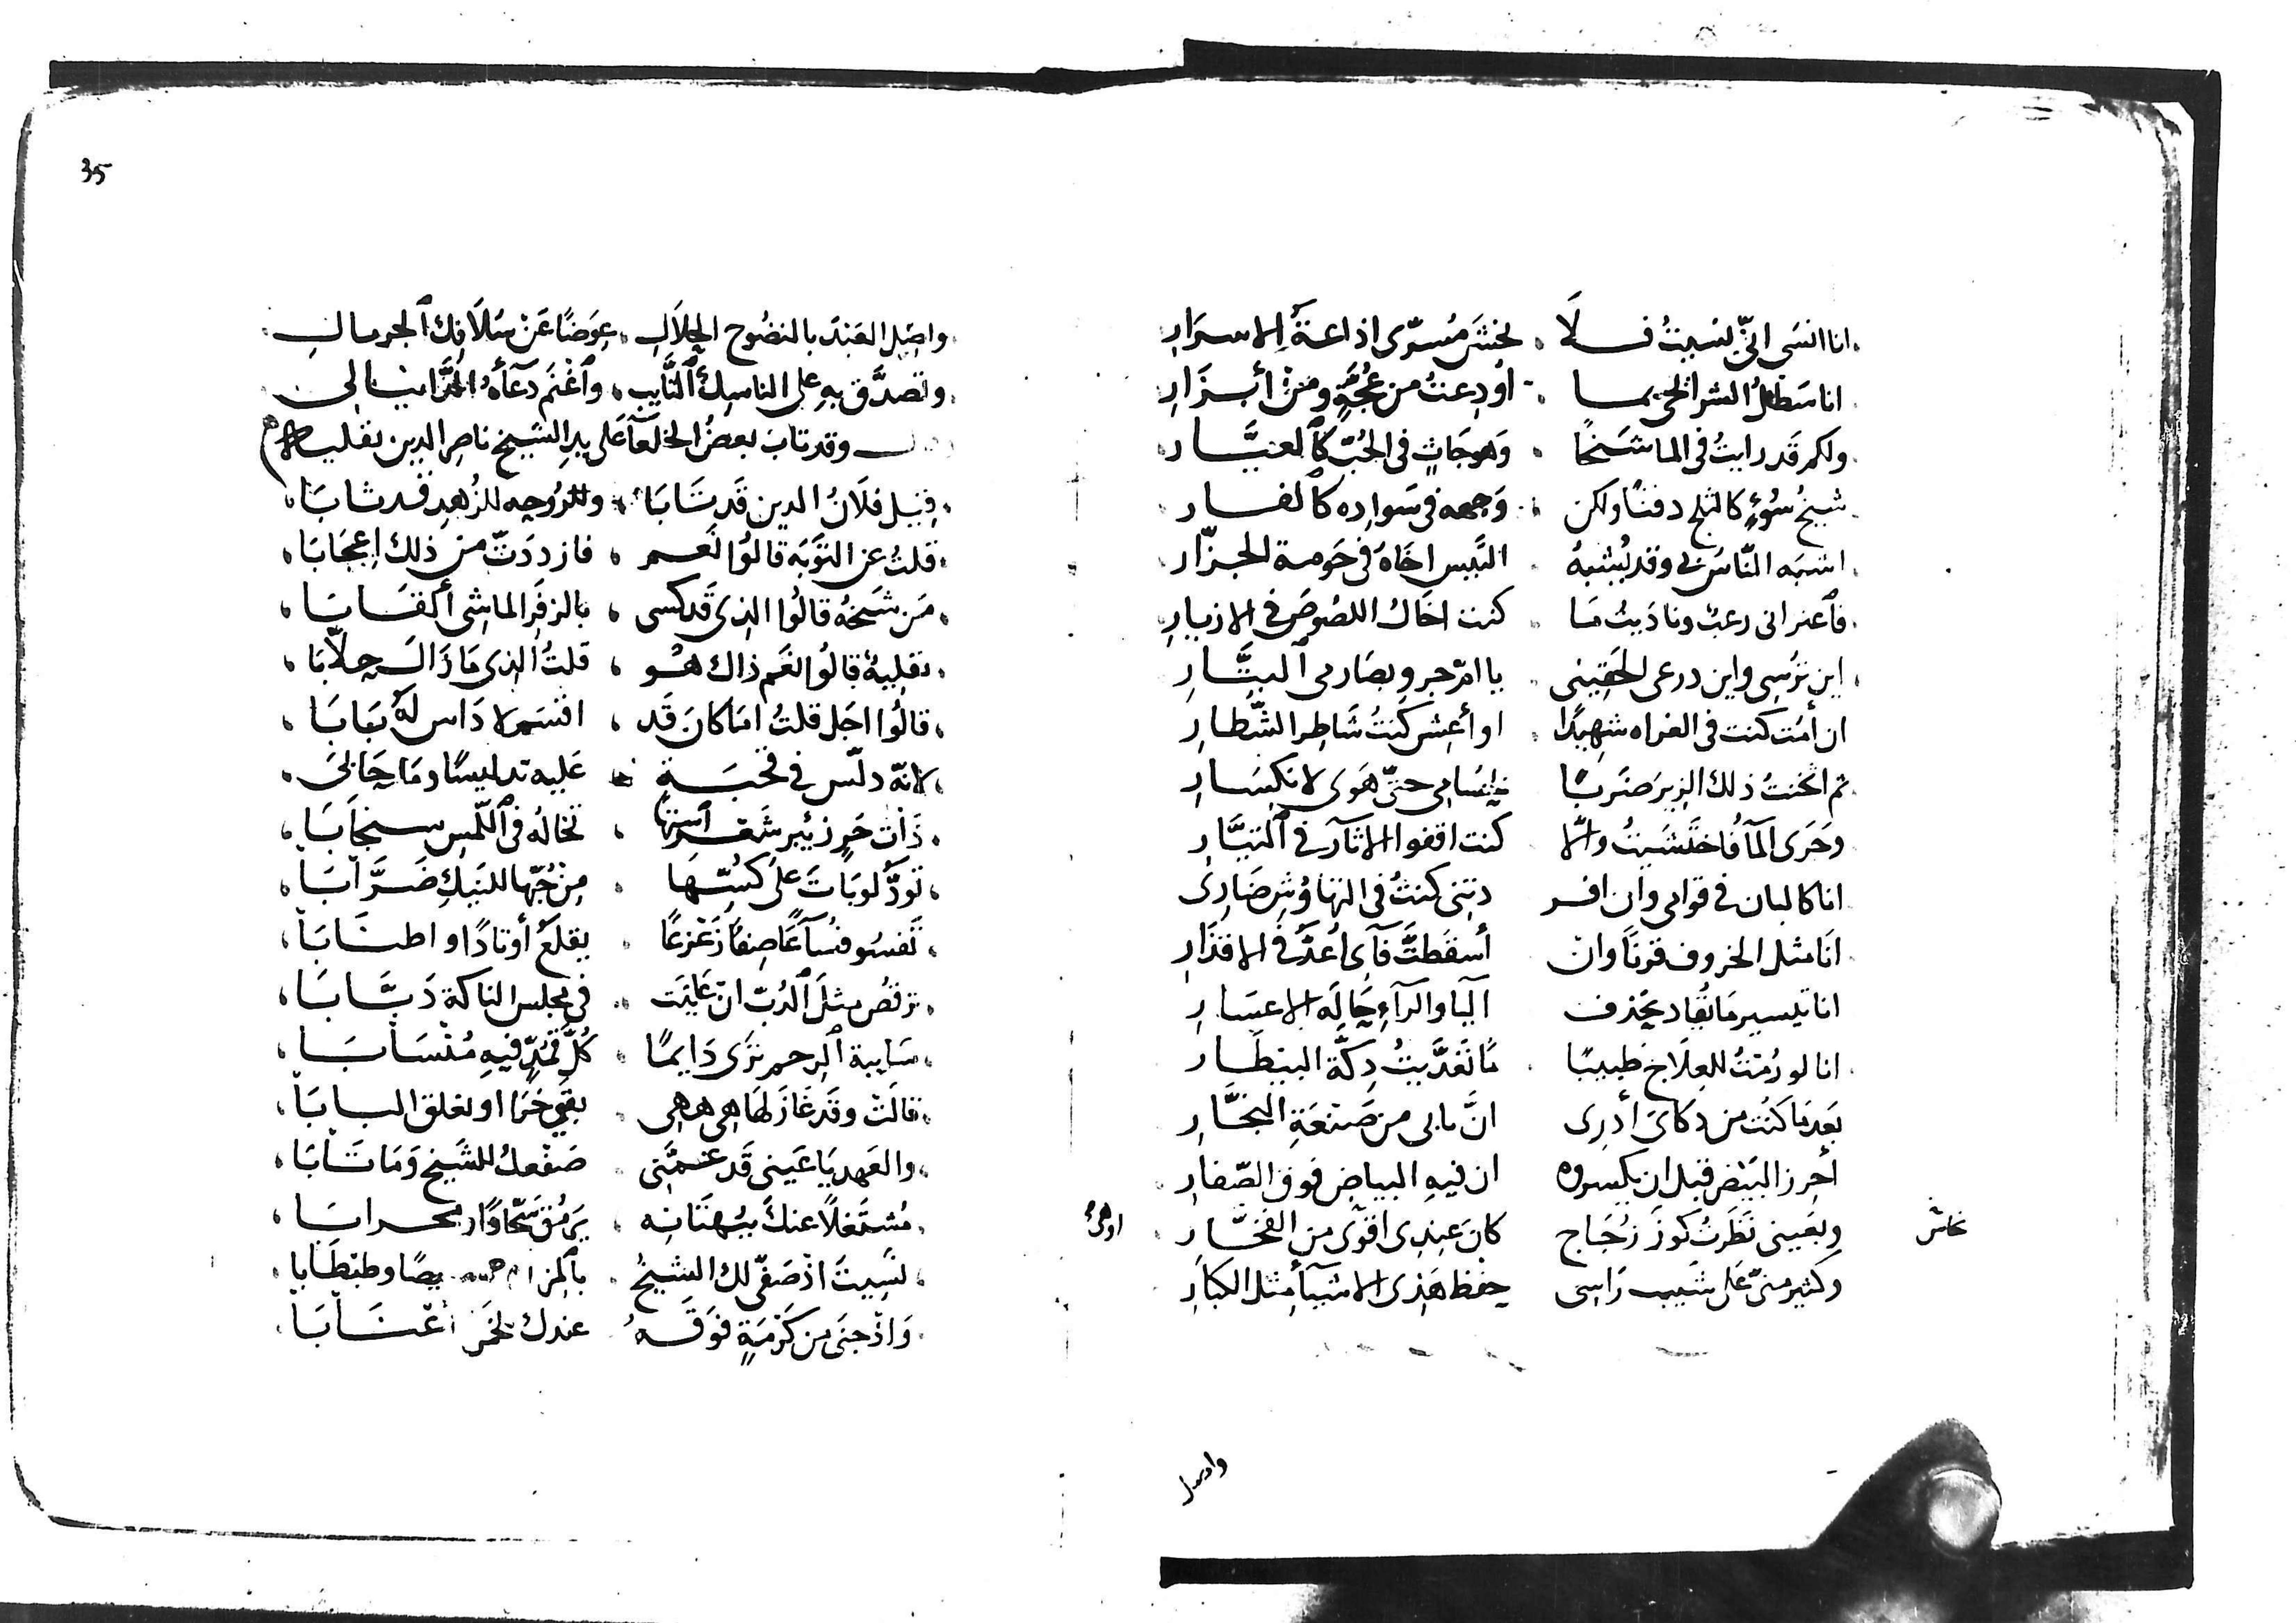 انا انسَى انّى نسَيتُ فَلَا . تخشَ مُسرّى اذاعةَ الاسرَارِ
انا سَطلُ الشرائحى بما . اُودِعتُ من عُجّةٍ ومن أبزَارِ
ولكم قد رايتُ فى الما شيخًا . وَهوجَاثٍ فى الجُبّ كالعيَّار
شيخُ سُوءٍ كالثلج دقنًا ولكن . وَجهه فى سَواده كالقار
اشبه النّاسَ بى وقد يُشبهُ . التَّيس اخاهُ فى حَومة الجزّار
فاعترانى رعبٌ وناديتُ مَا . كنت اخالُ اللصُوصَ فى الازيار
اين ترُسِى واين درعى الحقينى . يا امّ عمرٍو بصَارمى البتَّار
ان أمُت كنت فى الغزاه شهيدًا . او أعِش كنتُ شاطر الشّطار
ثم اثخنتُ ذلك الزيرَ ضربًا . بحسَامى حتّى هَوى لانكسَار
وجَرى المآ فاختشيتُ والّا . كنت اقفوا الاثار فى التيَّار
انا كالبان فى قوامى وان افر . دتنى كنتُ فى التهاوُشِ ضَارِى
انا مثل الخروف قرنًا وان . أسقطتَّ فآى اُعَدّ فى الاقذَارِ
انا تيسير مَا يُقاد بحذف . اليا والرآءِ حَالة الاعسَار
انا لو رُمتُ للعِلَاج طبيبًا . مَا تعَدَّيتُ دِكّة البيطار
بَعد مَا كنتُ من ذكاىَ أدرى . انَّ بابى من صَنعَةِ النجّار
أحرز البَيض قبل ان يكسروه . ان فيه البياض فوق الصّفار
وبعَينى نَظرتُ كوزَ زجَاج . كان عِندى اقوَى من الفخّار
وكثير منّى عَلى شَيبِ رَاسى . حِفظ هَذى الاشيآ مثل الكبارِ
واصل
واصِل العَبدَ بالنضُوح الحِلَالِ . عِوَضًا عَن سُلَافِك الجريالِ
وتصدَّق به على الناسِك التَّايبِ . واغْنَم دعآءهُ
وقد تاب بعضُ الخلعآ عَلى يدِ الشّيخ ناصِر الدين
قيل فلَانُ الدين قَد تَابَا . وللزُهدِ قد ثابَا
قلتُ عن التوَّبَه قالوُا نعَم . فازددتّ من ذلك اِعجَابَا
مَن شَيخهُ قالُوا الذى قَد كسى . بالزفر الماشى
قالُوا نعَم ذاك هُو . قلتُ الذى مَا زَالَ جلّابَا
قالُوا اجَل قلتُ امَا كانَ قَد . اقسَم لا دَاس لَهُ بَابَا
لانهّ دلّس فى قحبَةٍ . عَليه تدليسًا ومَا حَابَى
ذَات حَرٍ شَعرُ استِها . تخالُه فى اللّمس سِنجَابَا
تودُّ لو بَاتَ عَلى كُسّها . مِن حُبّها للنيكِ ضَرَّابَا
تفسُو فسآءً عَاصِفًا زَعْزَعًا . يقلَعُ أوتادًا واطنَابَا
ترقصُ مثل الدُبّ ان عَاينَت . فى مجلس الناكة دَبَّابَا
سَايبة الرحم ترَى دَايمًا . كُلَّ قُمُدٍّ فيهِ مُنْسَابَا
قالَت وقد غازَلهَا هِى هِى . او نغلق البابَا
والعَهد يَا عَينى قَد غمّنى . صَفْعكُ للشيخ وَمَا تَابَا
مُشتغلًا عنكَ
نسِيتَ اذْ صَفّى لك الشيخُ
وَاذْ جنَى من كرْمَةٍ فوقَهُ . عندك
35